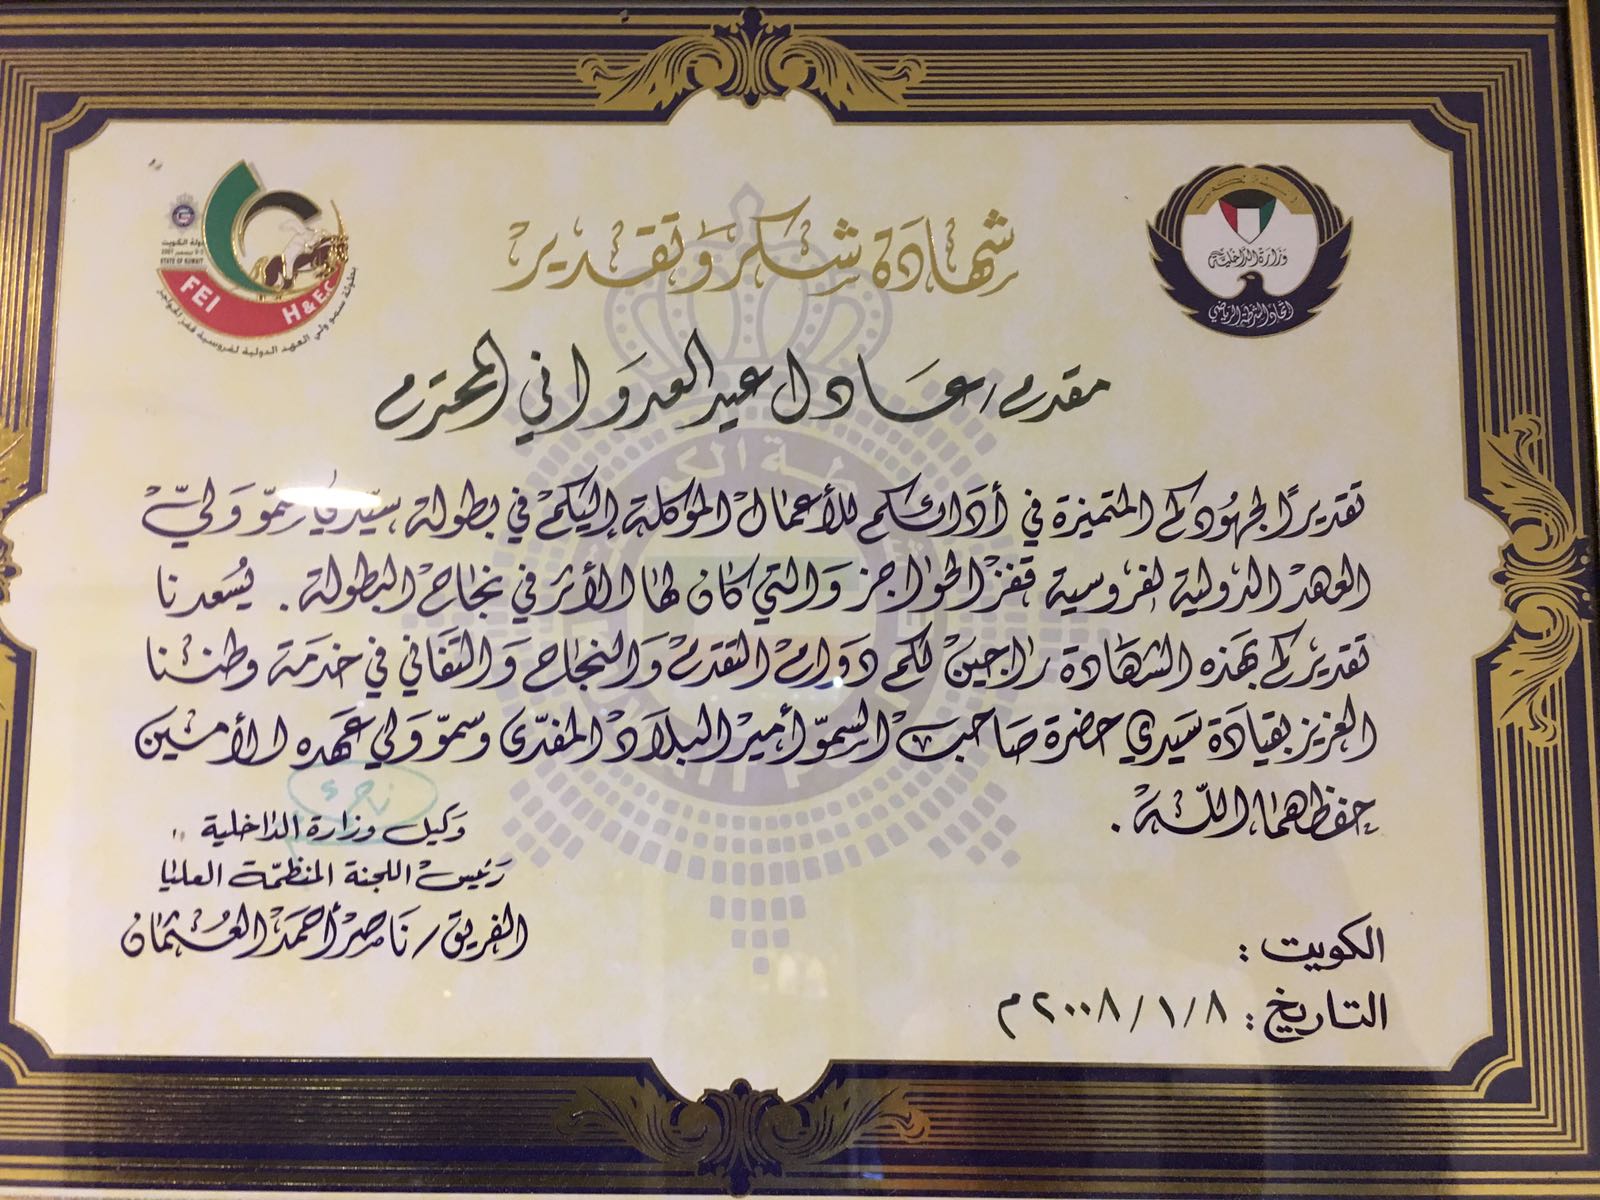 شهادة شكر وتقدير
وزارة الداخلية
اتحاد الشرطة الرياضي
دولة الكويت
STATE OF KUWAIT
FEI
H & E.C
بطولة سمو ولي العهد الدولية لفروسية قفز الحواجز
مقدم / عادل عيد العدواني المحترم
تقديرًا لجهودكم المتميزة في أدائكم للأعمال الموكلة إليكم في بطولة سيدي سمو ولي
العهد الدولية لفروسية قفز الحواجز والتي كان لها الأثر في نجاح البطولة . يسعدنا
تقديركم بهذه الشهادة راجين لكم دوام التقدم والنجاح والتفاني في خدمة وطننا
العزيز بقيادة سيدي حضرة صاحب السمو أمير البلاد المفدى وسمو ولي عهده الأمين
حفظهما الله .
وكيل وزارة الداخلية
رئيس اللجنة المنظمة العليا
الفريق / ناصر أحمد العثمان
الكويت :
التاريخ : ٢٠٠٨/١/٨م